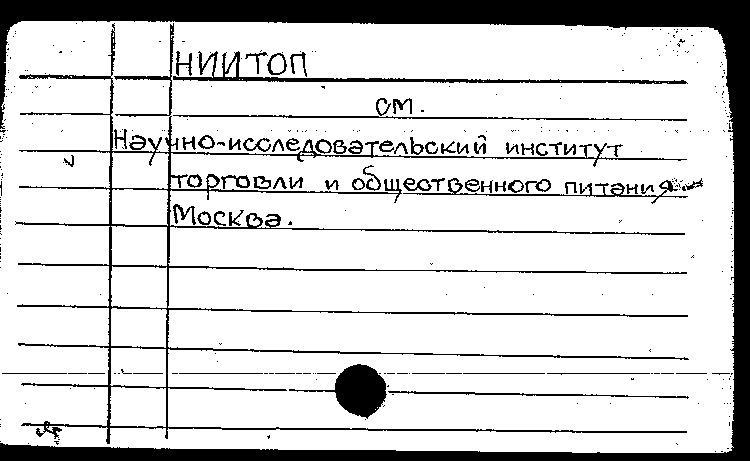 НИИТОП
см.
Научно-исследовательский институт
торговли и общественного питания
Москва.